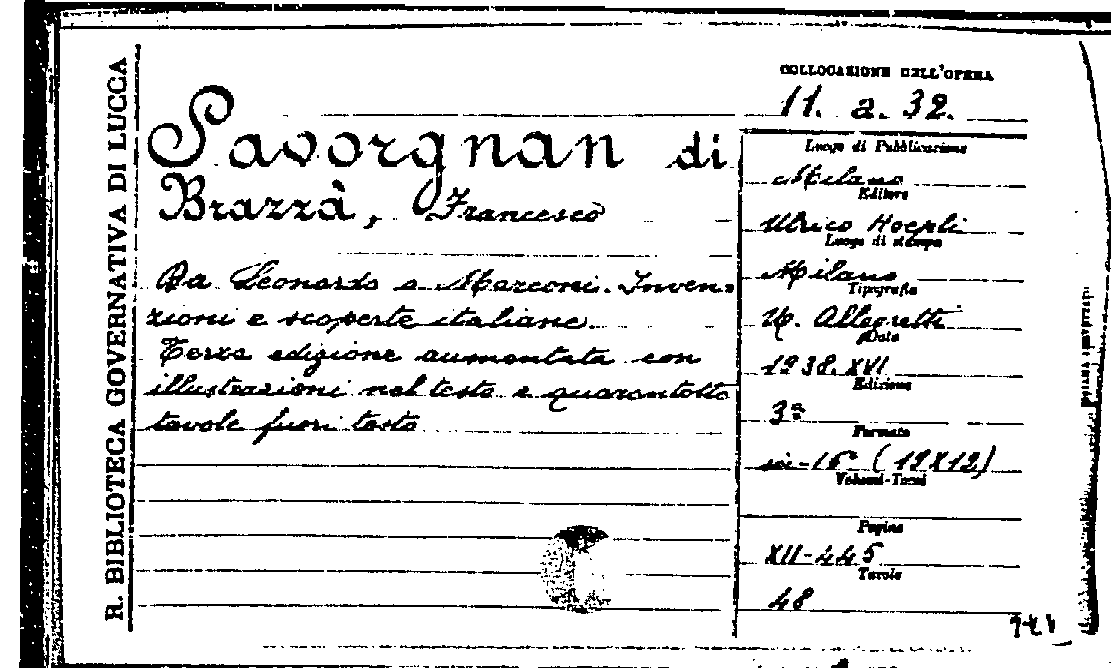 R. BIBLIOTECA GOVERNATIVA DI LUCCA
Savorgnan di
Brazzà, Francesco
Da Leonardo a Marconi. Inven-
zioni e scoperte italiane.
Terza edizione aumentata con
illustrazioni nel testo e quarantotto
tavole fuori testo
COLLOCAZIONE DELL'OPERA
11. a. 32.
Luogo di Pubblicazione
Milano
Editore
Ulrico Hoepli
Luogo di stampa
Milano
Tipografia
U. Allegretti
Data
1938. XVI
Edizione
3ª
Formato
in-16° (19X12)
Volumi-Tomi
Pagine
XII-445
Tavole
48